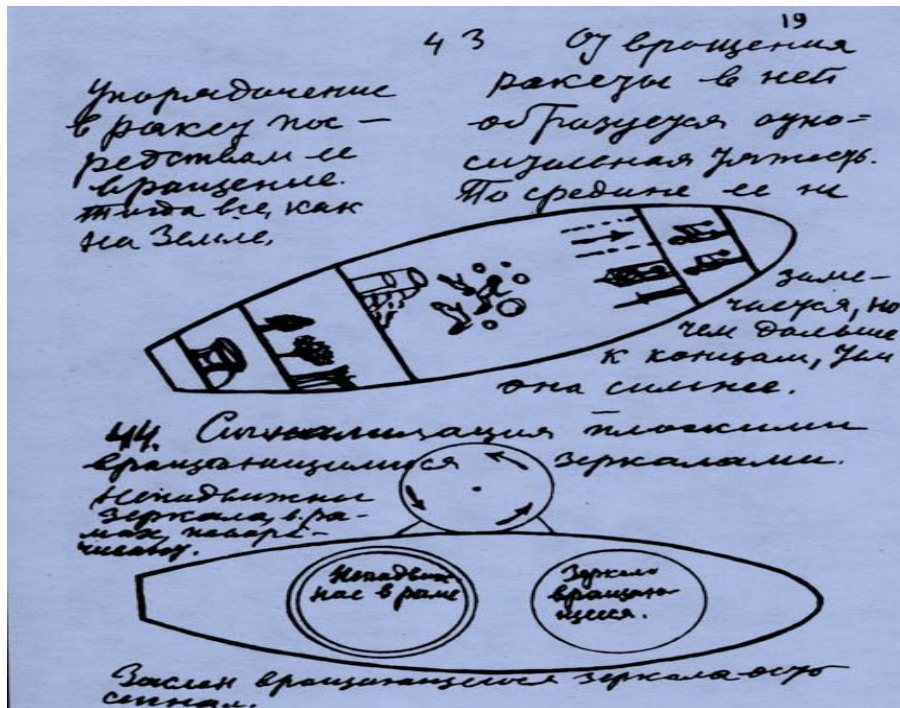 19
43
Упорядочение
в ракету пос –
редствам ее
вращение.
тогда все, как
на Земле.
От вращения
ракеты в ней
образуется отно=
сительная тяжесть.
По средине ее не
заме-
чается, но
чем дальше
к концам, тем
она сильнее.
44. Сигнализация плоскими
вращающимися зеркалами.
Неподвижны
зеркала, в ра-
мах, повора-
чивают.
Неподвиж
ное в раме
Зеркало
вращаю-
щееся.
Заслон вращающегося зеркала-есть
сигнал.